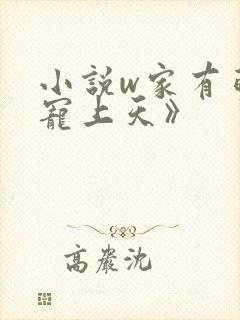 小說w家有
寵上天》
高嚴沈